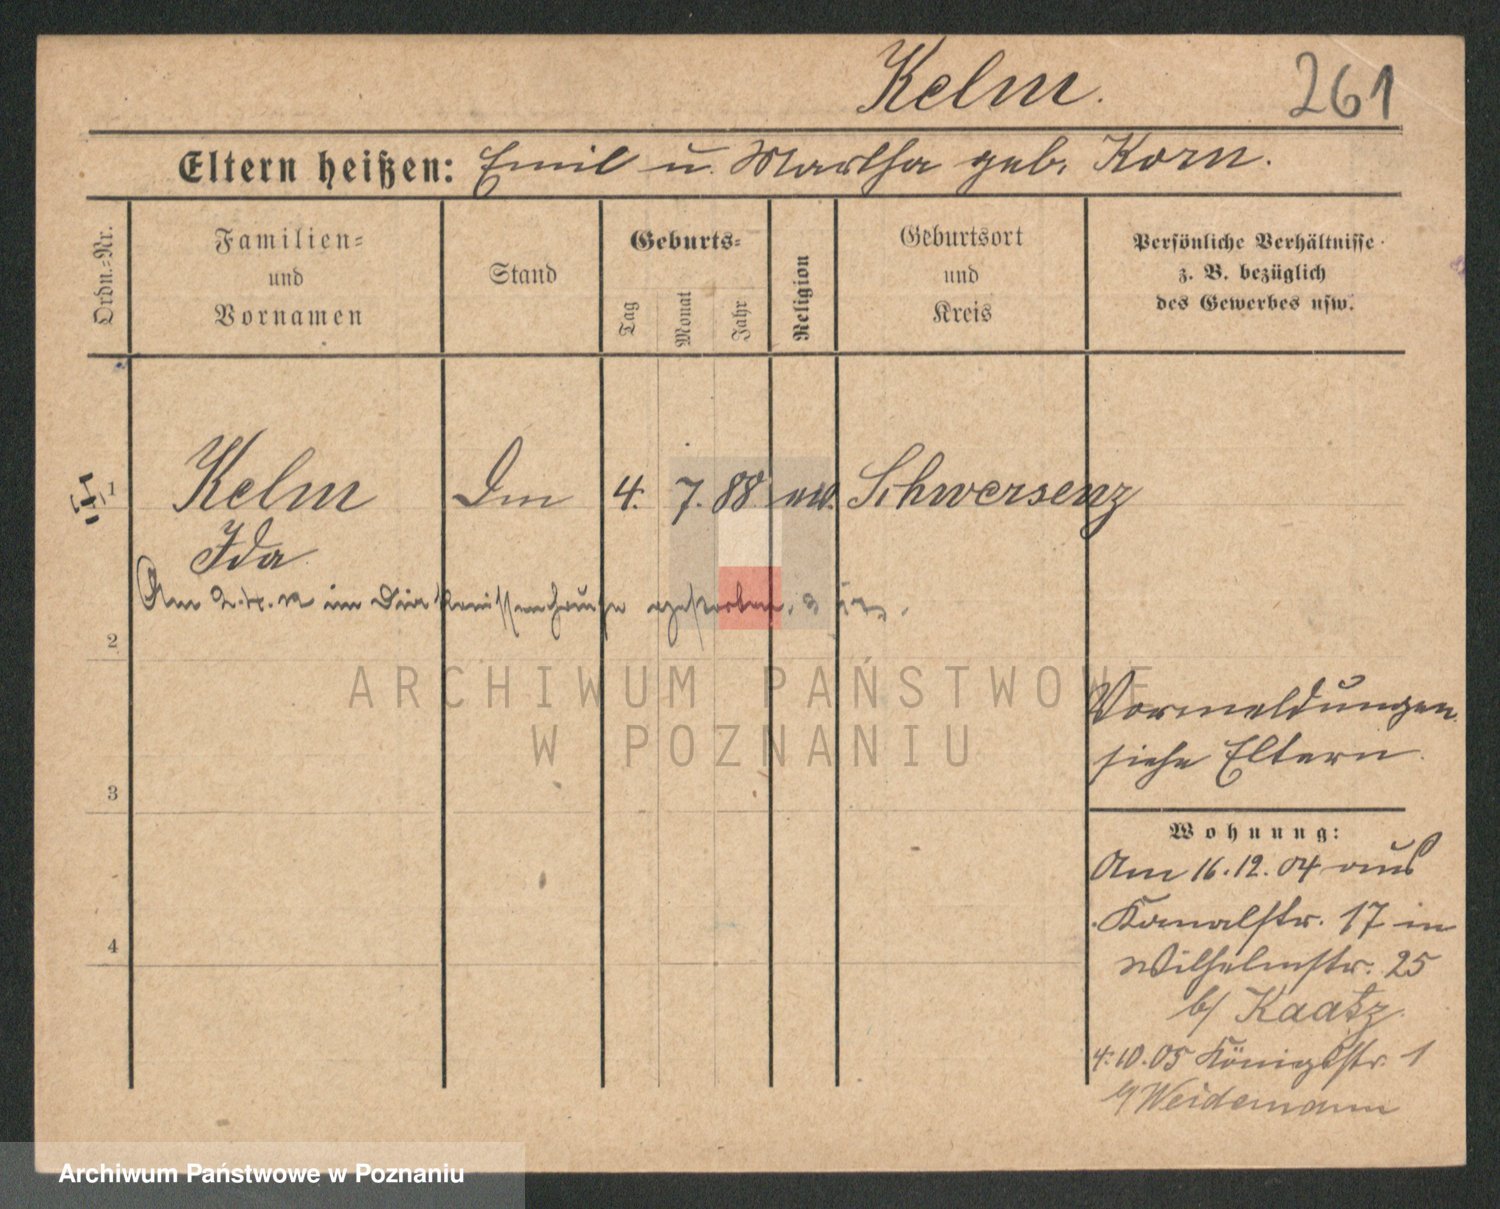 Kelm.
261
Eltern heißen: Emil u. Martha geb. Korn.
Ordn.=Nr.
Familien=
und
Vornamen
Stand
Geburts=
Tag
Monat
Jahr
Religion
Geburtsort
und
Kreis
Persönliche Verhältnisse
z. B. bezüglich
des Gewerbes usw.
1
Kelm
Ida
4. 7. 88
Schwersenz
Am im Diakonissenhause gestorben.
2
3
4
Vormeldungen
siehe Eltern.
Wohnung:
Am 16.12.04 aus
Kanalstr. 17 in
Wilhelmstr. 25
b/ Kaatz.
4.10.05 Königstr. 1
b/ Weidemann
ARCHIWUM PAŃSTWOWE
W POZNANIU
Archiwum Państwowe w Poznaniu